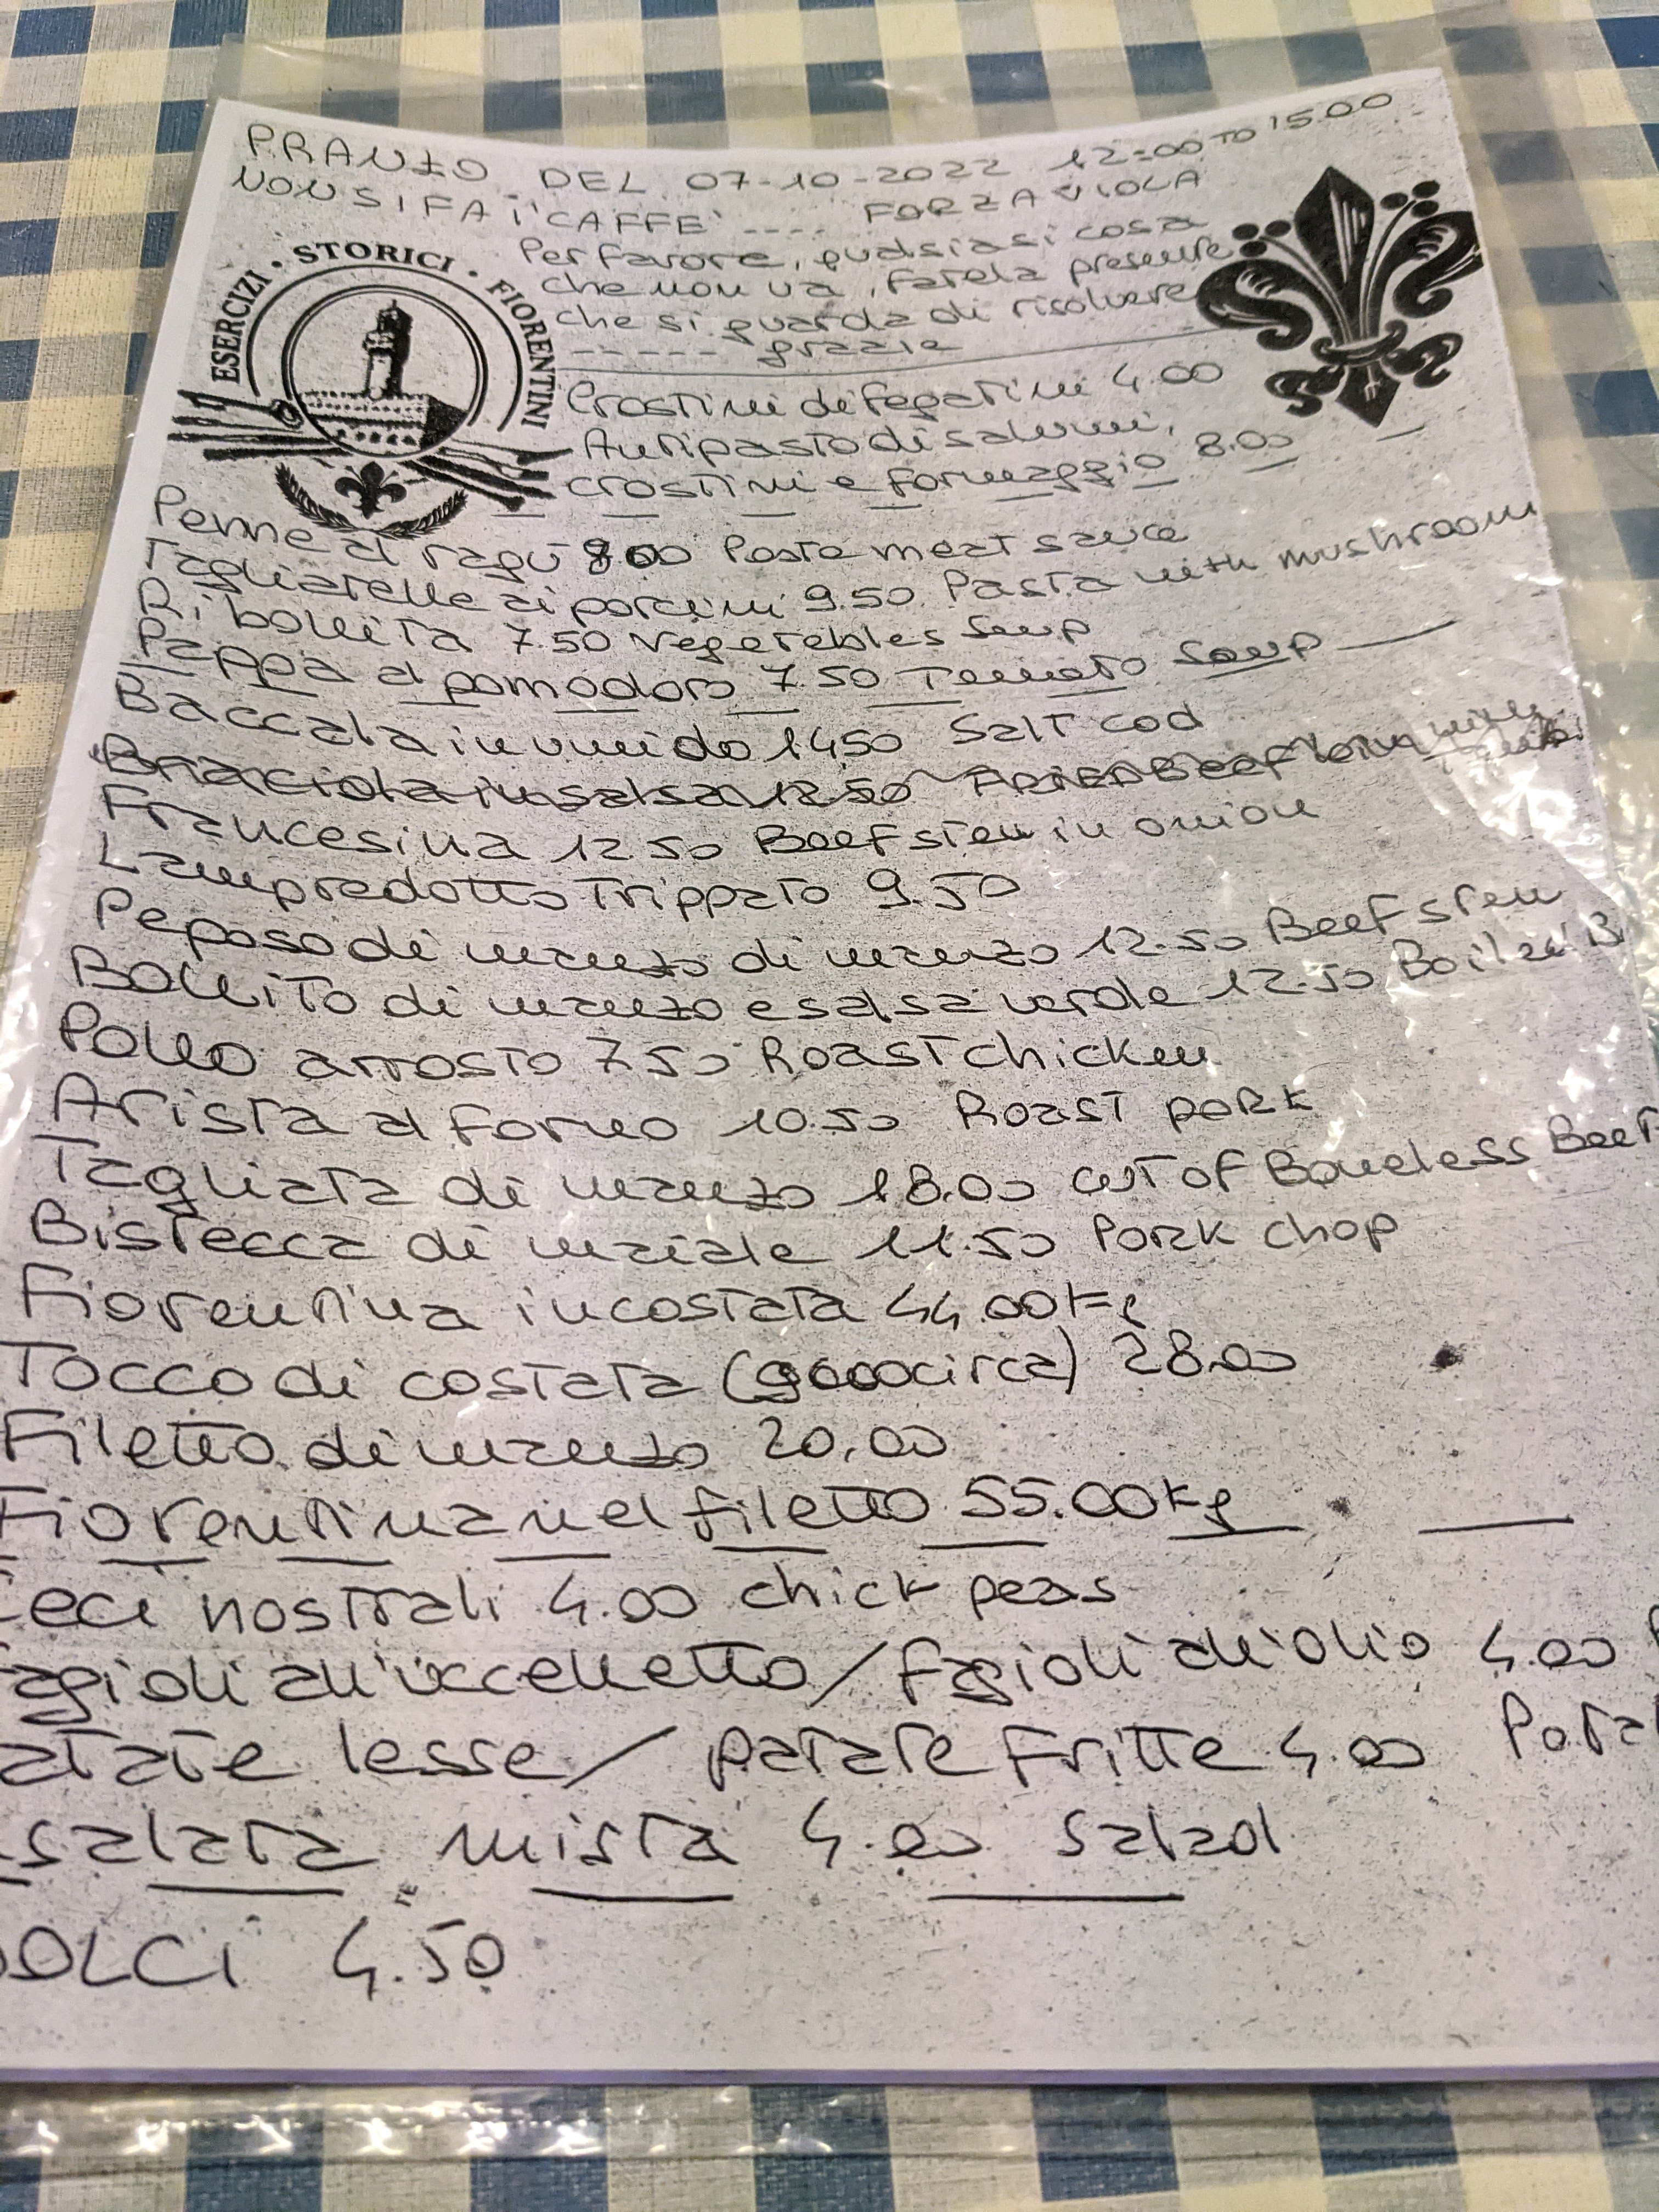 PRANZO DEL 07-10-2022 12=00 TO 15.00
NON SI FA i' CAFFE' ---- FORZA VIOLA
ESERCIZI · STORICI · FIORENTINI
Per favore, qualsiasi cosa
che non va, fatela presente
che si guarda di risolvere
----- grazie
Crostini di fegatini 4.00
Antipasto di salumi,
crostini e formaggio 8.00
Penne al ragù 8.00 Pasta meat sauce
Tagliatelle ai porcini 9.50 Pasta with mushroom
Ribollita 7.50 Vegetebles Soup
Pappa al pomodoro 7.50 Tomato Soup
Baccala in umido 14.50 Salt cod
Braciola in salsa 12.50 Fried Beef loin with
Francesina 12.50 Beef stew in onion
Lampredotto Trippato 9.50
Peposo di manzo di manzo 12.50 Beef stew
Bollito di manzo e salsa verde 12.50 Boiled B
Pollo arrosto 7.50 Roast chicken
Arista al forno 10.50 Roast pork
Tagliata di manzo 18.00 cut of Boneless Beef
Bistecca di maiale 11.50 Pork chop
Fiorentina in costata 44.00 Kg
Tocco di costata (circa) 28.00
Filetto di manzo 20.00
Fiorentina nel filetto 55.00 Kg
eci nostrali 4.00 chick peas
agioli all'uccelletto/fagioli all'olio 4.00
atate lesse/ patate fritte 4.00 Potat
salata mista 4.00 salad
OLCI 4.50